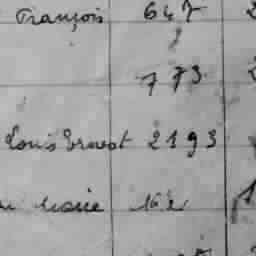 François 647
773
Louis Ernest 2193
Marie 162